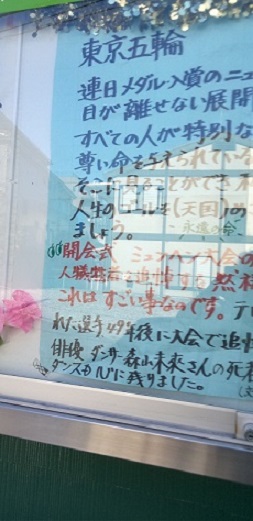 東京五輪
連日メダル入賞のニュ
目が離せない展開
すべての人が特別な
尊い命を与えられている
そこに見ることができ
人生のゴールを(天国)め
ましょう。 永遠の命
開会式 ミュンヘン大会の
人犠牲者を追悼する黙祷
これは すごい事なのです。テ
れた選手49年後に大会で追悼
俳優 ダンサー森山未來さんの死者
ダンスも心に残りました。